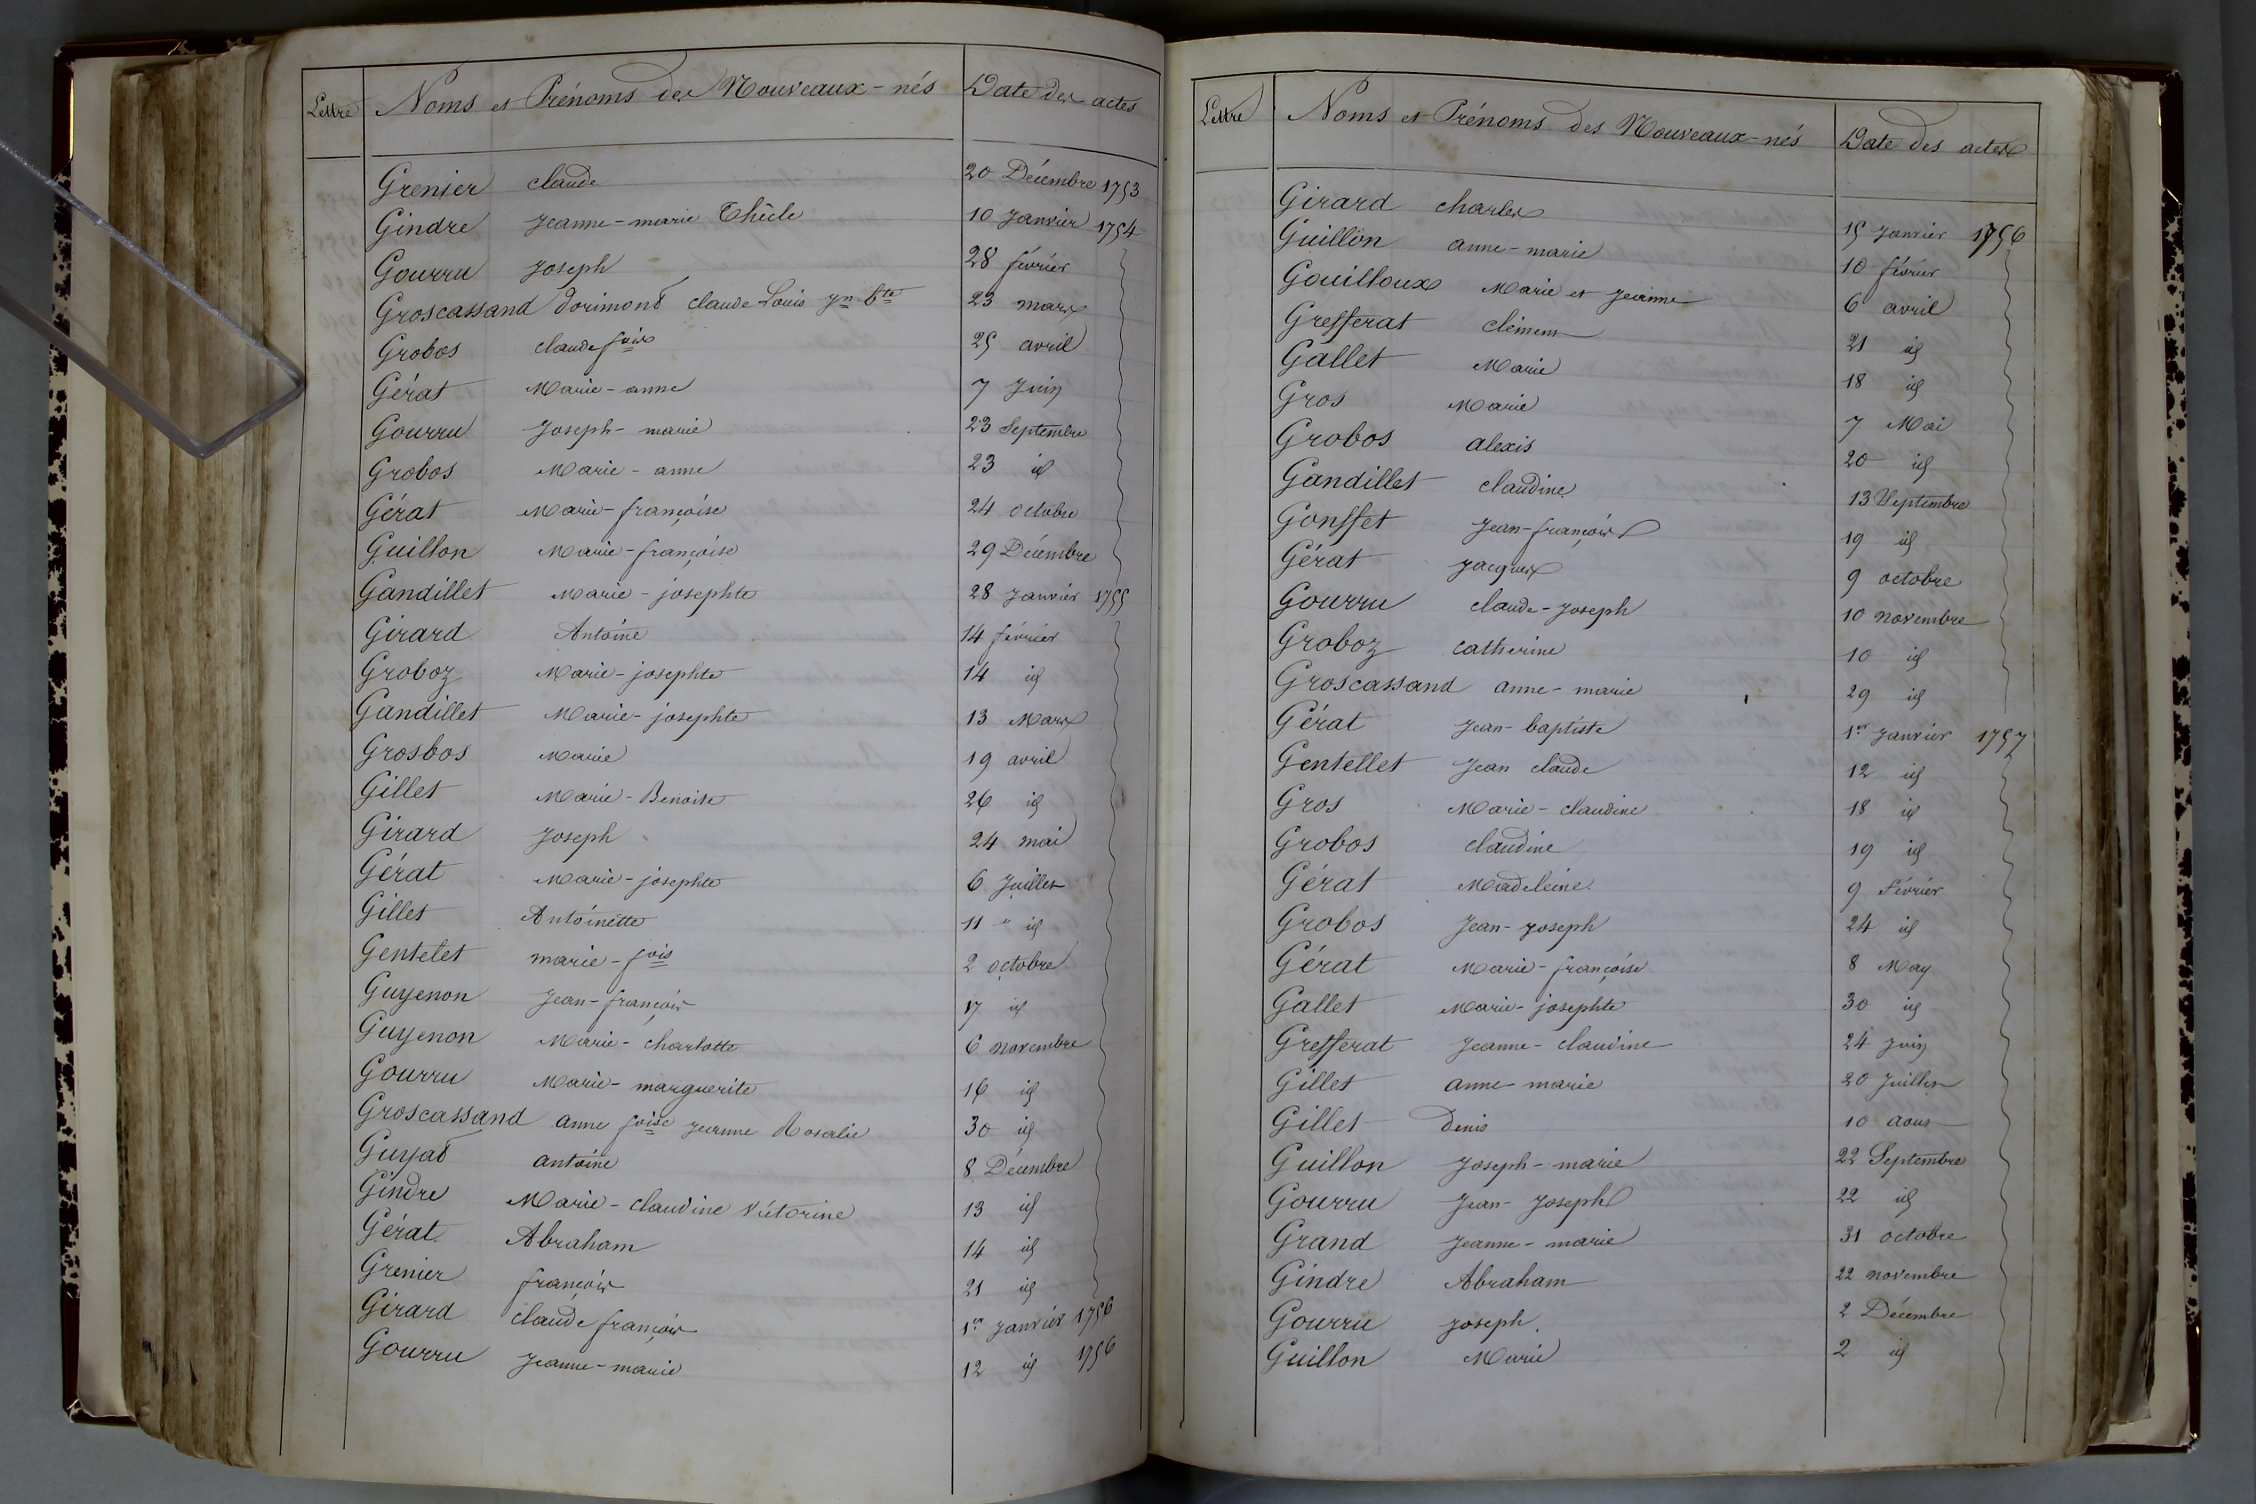 Lettre Noms et Prénoms des Nouveaux-nés Date des actes
Grenier claude 20 Décembre 1753
Gindre Jeanne-marie Thècle 10 Janvier 1754
Gourru Joseph 28 février
Groscassand dorimond claude Louis Jn Bte 23 mars
Grobos claude fois 25 avril
Gérat Marie-anne 7 Juin
Gourru Joseph-marie 23 Septembre
Grobos Marie-anne 23 id
Gérat Marie-françoise 24 octobre
Guillon Marie-françoise 29 Décembre
Gandillet Marie-josephte 28 Janvier 1755
Girard Antoine 14 février
Groboz Marie-josephte 14 id
Gandillet Marie-josephte 13 Mars
Grosbos Marie 19 avril
Gillet Marie-Benoite 26 id
Girard Joseph 24 mai
Gérat Marie-josephte 6 Juillet
Gillet Antoinette 11 " id
Gentelet marie-fois 2 octobre
Guyenon Jean-françois 17 id
Guyenon Marie-charlotte 6 novembre
Gourru Marie-marguerite 16 id
Groscassand anne foise jeanne Rosalie 30 id
Guyad antoine 8 Décembre
Gindre Marie-claudine Victorine 13 id
Gérat Abraham 14 id
Grenier françois 21 id
Girard claude françois 1er janvier 1756
Gourru Jeanne-marie 12 id 1756
Lettre Noms et Prénoms des Nouveaux-nés Date des actes
Girard charles 15 Janvier 1756
Guillon anne-marie 10 février
Gouilloux Marie et Jeanne 6 avril
Grefferat clément 21 id
Gallet Marie 18 id
Gros Marie 7 Mai
Grobos alexis 20 id
Gandillet claudine 13 Septembre
Gonffet Jean-françois 19 id
Gérat Jacques 9 octobre
Gourru claude-Joseph 10 novembre
Groboz catherine 10 id
Groscassand anne-marie 29 id
Gérat Jean-baptiste 1er Janvier 1757
Gentellet Jean claude 12 id
Gros Marie-claudine 18 id
Grobos claudine 19 id
Gérat Madeleine 9 Février
Grobos Jean-joseph 24 id
Gérat Marie-françoise 8 May
Gallet Marie-josephte 30 id
Grefferat Jeanne-claudine 24 Juin
Gillet anne-marie 20 Juillet
Gillet Denis 10 aout
Guillon Joseph-marie 22 Septembre
Gourru Jean-Joseph 22 id
Grand Jeanne-marie 31 octobre
Gindre Abraham 22 novembre
Gourru Joseph. 2 Décembre
Guillon Marie 2 id